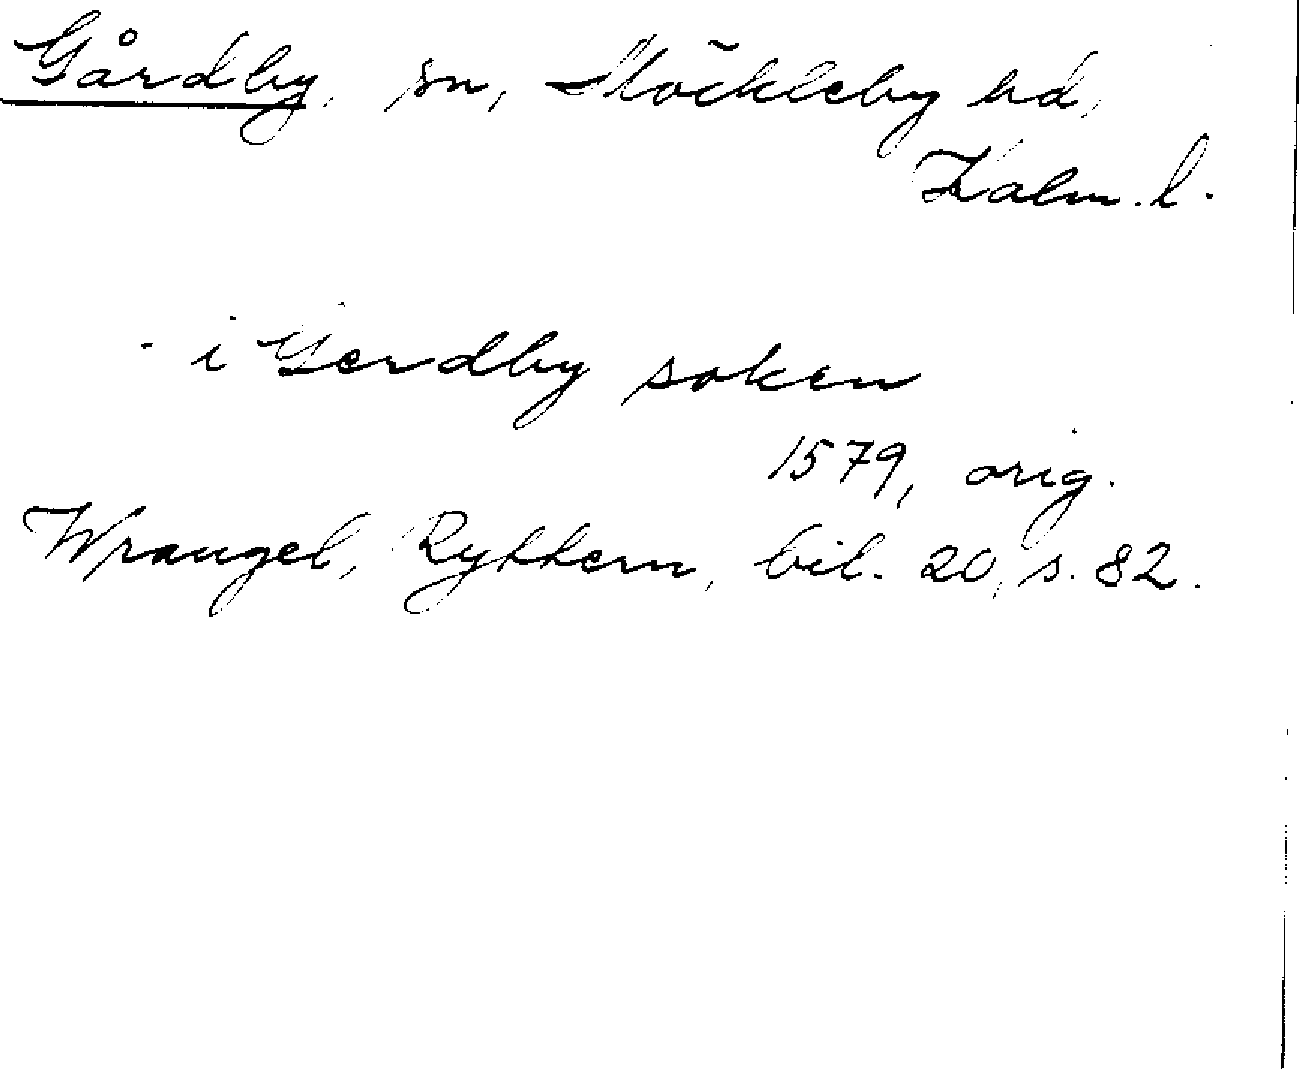 Gårdby, sn, Möckleby hd,
Kalm. l.
- i Gerdby soken
1579, orig.
Wrangel, Ryttern, bil. 20, s. 82.